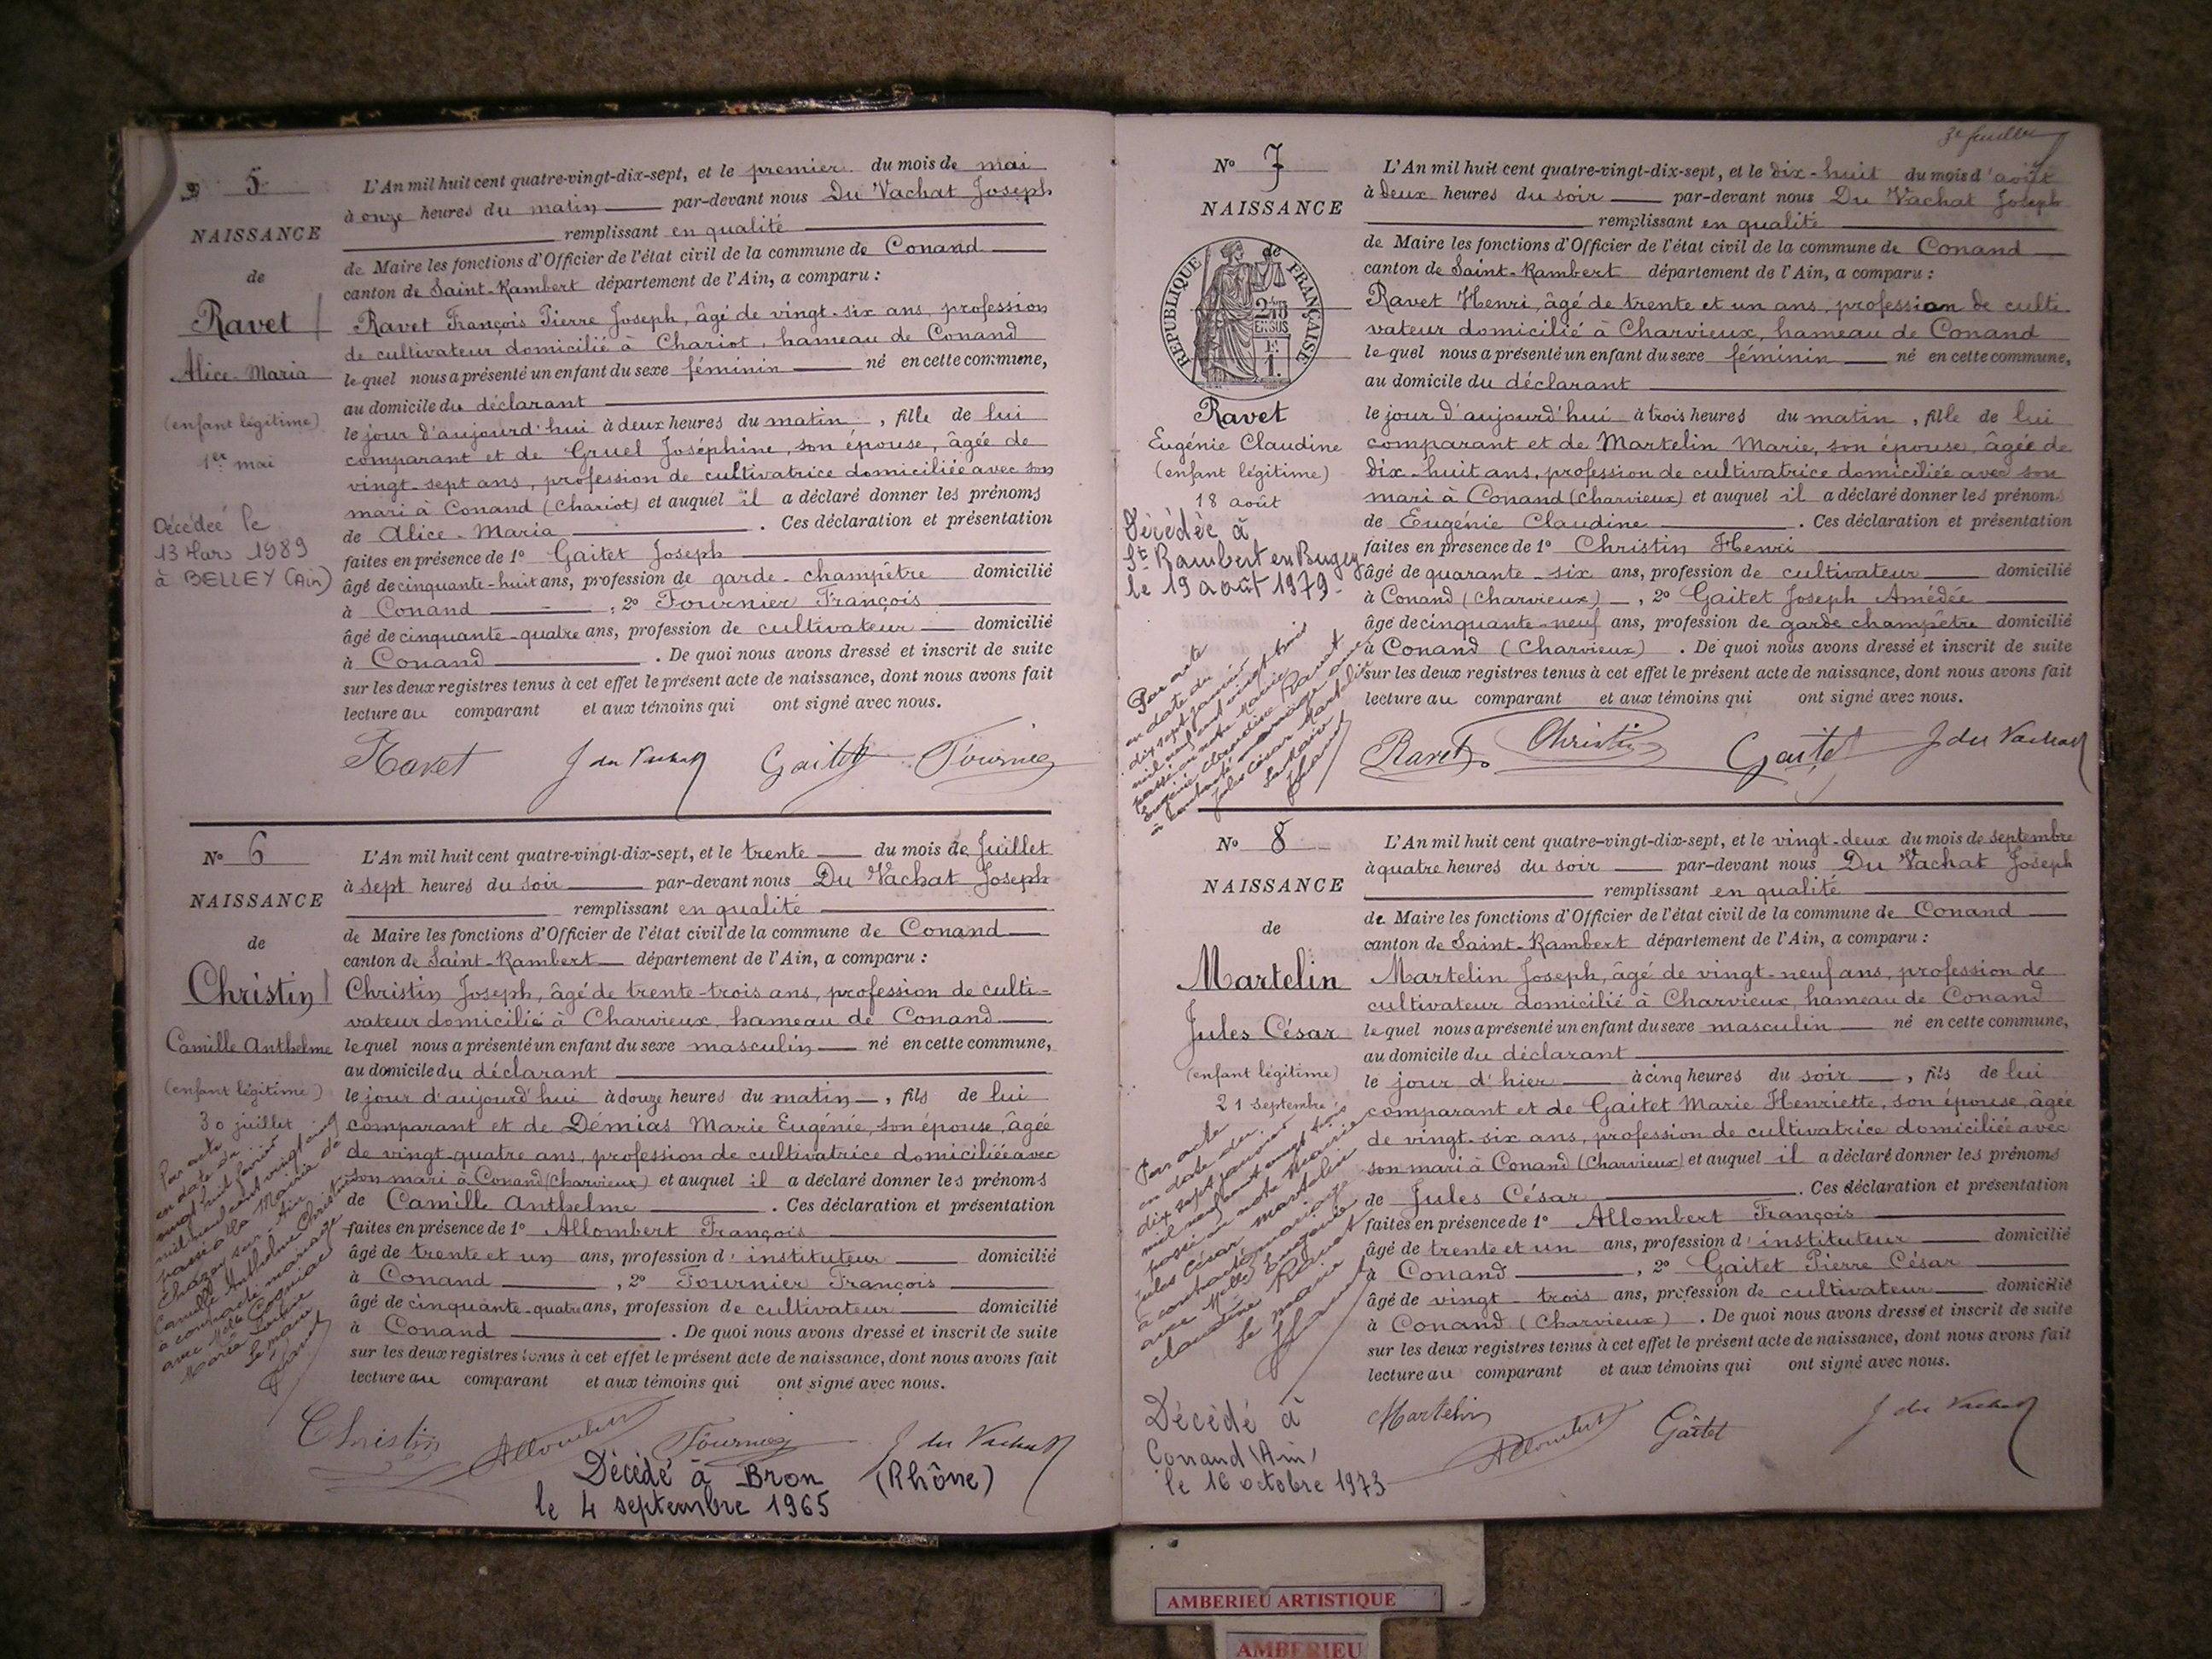 N° 5
NAISSANCE
de
Ravet
Alice-Maria
(enfant légitime)
1er mai
Décédée le
13 Mars 1989
à BELLEY (Ain)
L'An mil huit cent quatre-vingt-dix-sept, et le premier du mois de mai
à onze heures du matin par-devant nous Du Vachat Joseph
remplissant en qualité
de Maire les fonctions d'Officier de l'état civil de la commune de Conand
canton de Saint-Rambert département de l'Ain, a comparu :
Ravet François Pierre Joseph, âgé de vingt-six ans, profession
de cultivateur domicilié à Chariot, hameau de Conand
lequel nous a présenté un enfant du sexe féminin né en cette commune,
au domicile du déclarant
le jour d'aujourd'hui à deux heures du matin, fille de lui
comparant et de Gruel Joséphine, son épouse, âgée de
vingt-sept ans, profession de cultivatrice domiciliée avec son
mari à Conand (Chariot) et auquel il a déclaré donner les prénoms
de Alice-Maria . Ces déclaration et présentation
faites en présence de 1° Gaitet Joseph
âgé de cinquante-huit ans, profession de garde-champêtre domicilié
à Conand , 2° Fournier François
âgé de cinquante-quatre ans, profession de cultivateur domicilié
à Conand . De quoi nous avons dressé et inscrit de suite
sur les deux registres tenus à cet effet le présent acte de naissance, dont nous avons fait
lecture au comparant et aux témoins qui ont signé avec nous.
Ravet J du Vachat Gaitet Fournier
N° 6
NAISSANCE
de
Christin
Camille Anthelme
(enfant légitime)
30 juillet
Par acte
en date du
vingt huit février
mil neuf cent vingt cinq
passé à la Mairie de
Chazey sur Ain
Camille Anthelme Christin
a contracté mariage
avec Melle Cogniac
Maria
Le maire
L'An mil huit cent quatre-vingt-dix-sept, et le trente du mois de Juillet
à sept heures du soir par-devant nous Du Vachat Joseph
remplissant en qualité
de Maire les fonctions d'Officier de l'état civil de la commune de Conand
canton de Saint-Rambert département de l'Ain, a comparu :
Christin Joseph, âgé de trente-trois ans, profession de culti-
vateur domicilié à Charvieux, hameau de Conand
lequel nous a présenté un enfant du sexe masculin né en cette commune,
au domicile du déclarant
le jour d'aujourd'hui à douze heures du matin, fils de lui
comparant et de Démias Marie Eugénie, son épouse, âgée
de vingt-quatre ans, profession de cultivatrice domiciliée avec
son mari à Conand (Charvieux) et auquel il a déclaré donner les prénoms
de Camille Anthelme . Ces déclaration et présentation
faites en présence de 1° Allombert François
âgé de trente et un ans, profession d'instituteur domicilié
à Conand , 2° Fournier François
âgé de cinquante-quatre ans, profession de cultivateur domicilié
à Conand . De quoi nous avons dressé et inscrit de suite
sur les deux registres tenus à cet effet le présent acte de naissance, dont nous avons fait
lecture au comparant et aux témoins qui ont signé avec nous.
Christin Allombert Fournier J du Vachat
Décédé à Bron (Rhône)
le 4 septembre 1965
3e feuillet
N° 7
NAISSANCE
de
RÉPUBLIQUE FRANÇAISE
Ravet
Eugénie Claudine
(enfant légitime)
18 août
Décédée à
St Rambert en Bugey
le 19 août 1979.
Par acte
en date du
dix sept janvier
mil neuf cent vingt trois
passé en notre Mairie
Eugénie Claudine Ravet
a contracté mariage avec
Jules César Martelin
Le Maire
L'An mil huit cent quatre-vingt-dix-sept, et le dix-huit du mois d'août
à deux heures du soir par-devant nous Du Vachat Joseph
remplissant en qualité
de Maire les fonctions d'Officier de l'état civil de la commune de Conand
canton de Saint-Rambert département de l'Ain, a comparu :
Ravet Henri, âgé de trente et un ans, profession de culti
vateur domicilié à Charvieux, hameau de Conand
lequel nous a présenté un enfant du sexe féminin né en cette commune,
au domicile du déclarant
le jour d'aujourd'hui à trois heures du matin, fille de lui
comparant et de Martelin Marie, son épouse, âgée de
dix-huit ans, profession de cultivatrice domiciliée avec son
mari à Conand (Charvieux) et auquel il a déclaré donner les prénoms
de Eugénie Claudine . Ces déclaration et présentation
faites en présence de 1° Christin Henri
âgé de quarante-six ans, profession de cultivateur domicilié
à Conand (Charvieux) , 2° Gaitet Joseph Amédée
âgé de cinquante-neuf ans, profession de garde champêtre domicilié
à Conand (Charvieux) . De quoi nous avons dressé et inscrit de suite
sur les deux registres tenus à cet effet le présent acte de naissance, dont nous avons fait
lecture au comparant et aux témoins qui ont signé avec nous.
Ravet Christin Gaitet J du Vachat
N° 8
NAISSANCE
de
Martelin
Jules César
(enfant légitime)
21 septembre
Par acte
en date du
dix sept janvier
mil neuf cent vingt trois
passé en notre Mairie
Jules César Martelin
a contracté mariage
avec Melle Eugénie
Claudine Ravet
Le maire
Décédé à
Conand (Ain)
le 16 octobre 1973
L'An mil huit cent quatre-vingt-dix-sept, et le vingt-deux du mois de septembre
à quatre heures du soir par-devant nous Du Vachat Joseph
remplissant en qualité
de Maire les fonctions d'Officier de l'état civil de la commune de Conand
canton de Saint-Rambert département de l'Ain, a comparu :
Martelin Joseph, âgé de vingt-neuf ans, profession de
cultivateur domicilié à Charvieux, hameau de Conand
lequel nous a présenté un enfant du sexe masculin né en cette commune,
au domicile du déclarant
le jour d'hier à cinq heures du soir, fils de lui
comparant et de Gaitet Marie Henriette, son épouse, âgée
de vingt-six ans, profession de cultivatrice domiciliée avec
son mari à Conand (Charvieux) et auquel il a déclaré donner les prénoms
de Jules César . Ces déclaration et présentation
faites en présence de 1° Allombert François
âgé de trente et un ans, profession d'instituteur domicilié
à Conand , 2° Gaitet Pierre César
âgé de vingt-trois ans, profession de cultivateur domicilié
à Conand (Charvieux) . De quoi nous avons dressé et inscrit de suite
sur les deux registres tenus à cet effet le présent acte de naissance, dont nous avons fait
lecture au comparant et aux témoins qui ont signé avec nous.
Martelin Allombert Gaitet J du Vachat
AMBERIEU ARTISTIQUE
AMBERIEU